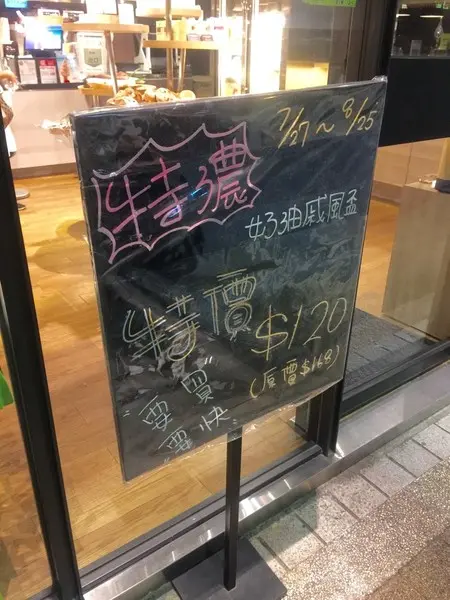 7/27～8/25
特濃
奶油戚風盃
特價 $120
(原價$168)
"要買"
"要快"